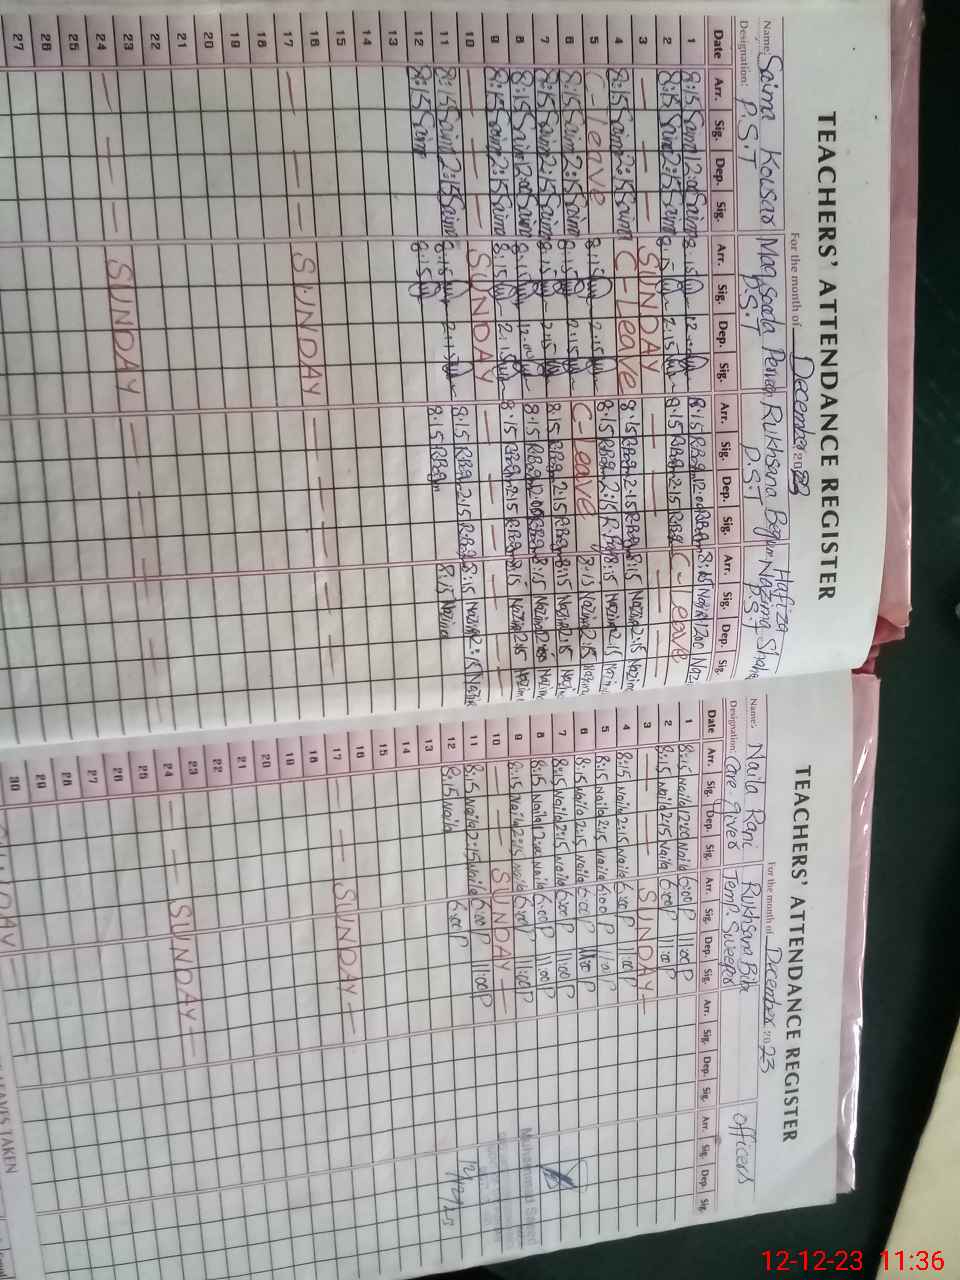 TEACHERS' ATTENDANCE REGISTER
For the month of December 2023
Name: Saima Kousar Maqsooda Perveen Rukhsana Begum Hafiza Nazina Shaheen
Designation: P.S.T P.S.T P.S.T P.S.T
Date Arr. Sig. Dep. Sig. Arr. Sig. Dep. Sig. Arr. Sig. Dep. Sig. Arr. Sig. Dep. Sig.
1 8:15 Saima 12:00 Saima 8:15 12:00 8:15 RBegm 12:00 RBegm 8:15 Nazina 12:00
2 8:15 Saima 2:15 Saima 8:15 2:15 8:15 RBegm 2:15 RBegm C-Leave
3 — — — SUNDAY — — —
4 8:15 Saima 2:15 Saima C-Leave 8:15 RBegm 2:15 RBegm 8:15 Nazina 2:15
5 C-leave 8:15 2:15 8:15 RBegm 2:15 R.Begm 8:15 Nazina 2:15 Nazina
6 8:15 Saima 2:15 Saima 8:15 2:15 C-Leave 8:15 Nazina 2:15 Nazina
7 8:15 Saima 2:15 Saima 8:15 2:15 8:15 RBegm 2:15 RBegm 8:15 Nazina 2:15 Nazina
8 8:15 Saima 12:00 Saima 8:15 12:00 8:15 RBegm 12:00 RBegm 8:15 Nazina 12:00 Nazina
9 8:15 Saima 2:15 Saima 8:15 2:15 8:15 RBegm 2:15 RBegm 8:15 Nazina 2:15 Nazina
10 — — — SUNDAY — — —
11 8:15 Saima 2:15 Saima 8:15 2:15 8:15 RBegm 2:15 RBegm 8:15 Nazina 2:15 Nazina
12 8:15 Saima 8:15 8:15 RBegm 8:15 Nazina
13
14
15
16
17 — — — SUNDAY — — — —
18
19
20
21
22
23
24 — — — SUNDAY — — — —
25
26
27
TEACHERS' ATTENDANCE REGISTER
For the month of December 2023
Name: Naila Rani Rukhsana Bibi officers
Designation: Care-giver Temp. Sweeper
Date Arr. Sig. Dep. Sig. Arr. Sig. Dep. Sig. Arr. Sig. Dep. Sig. Arr. Sig. Dep. Sig.
1 8:15 Naila 12:00 Naila 6:00 P 11:00 P
2 8:15 Naila 2:15 Naila 6:00 P 11:00 P
3 — — SUNDAY —
4 8:15 Naila 2:15 Naila 6:00 P 11:00 P
5 8:15 Naila 2:15 Naila 6:00 P 11:00 P
6 8:15 Naila 2:15 Naila 6:00 P 11:00 P
7 8:15 Naila 2:15 Naila 6:00 P 11:00 P
8 8:15 Naila 12:00 Naila 6:00 P 11:00 P
9 8:15 Naila 2:15 Naila 6:00 P 11:00 P
10 — — SUNDAY —
11 8:15 Naila 2:15 Naila 6:00 P 11:00 P
12 8:15 Naila 6:00 P 12/12/23
13
14
15
16
17 — — SUNDAY —
18
19
20
21
22
23
24 — — SUNDAY —
25
26
27
28
29
30
LEAVES TAKEN
12-12-23 11:36